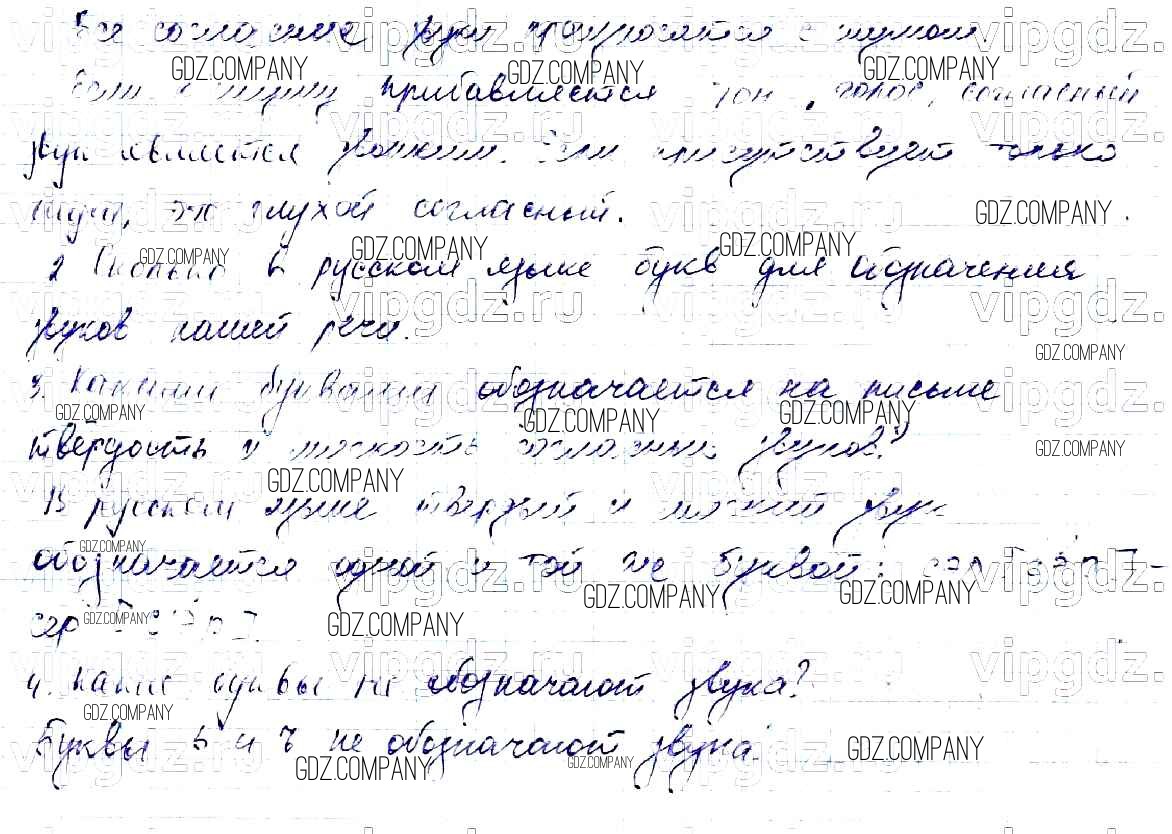 Все согласные звуки произносятся с шумом.
Если к шуму прибавляется тон, голос, согласный
звук является звонким. Если присутствует только
шум, это глухой согласный.
2. Сколько в русском языке букв для обозначения
звуков нашей речи.
3. Какими буквами обозначается на письме
твёрдость и мягкость согласных звуков?
В русском языке твердый и мягкий звук
обозначается одной и той же буквой:
4. Какие буквы не обозначают звука?
Буквы ь и ъ не обозначают звука.
GDZ.COMPANY
vipgdz.ru